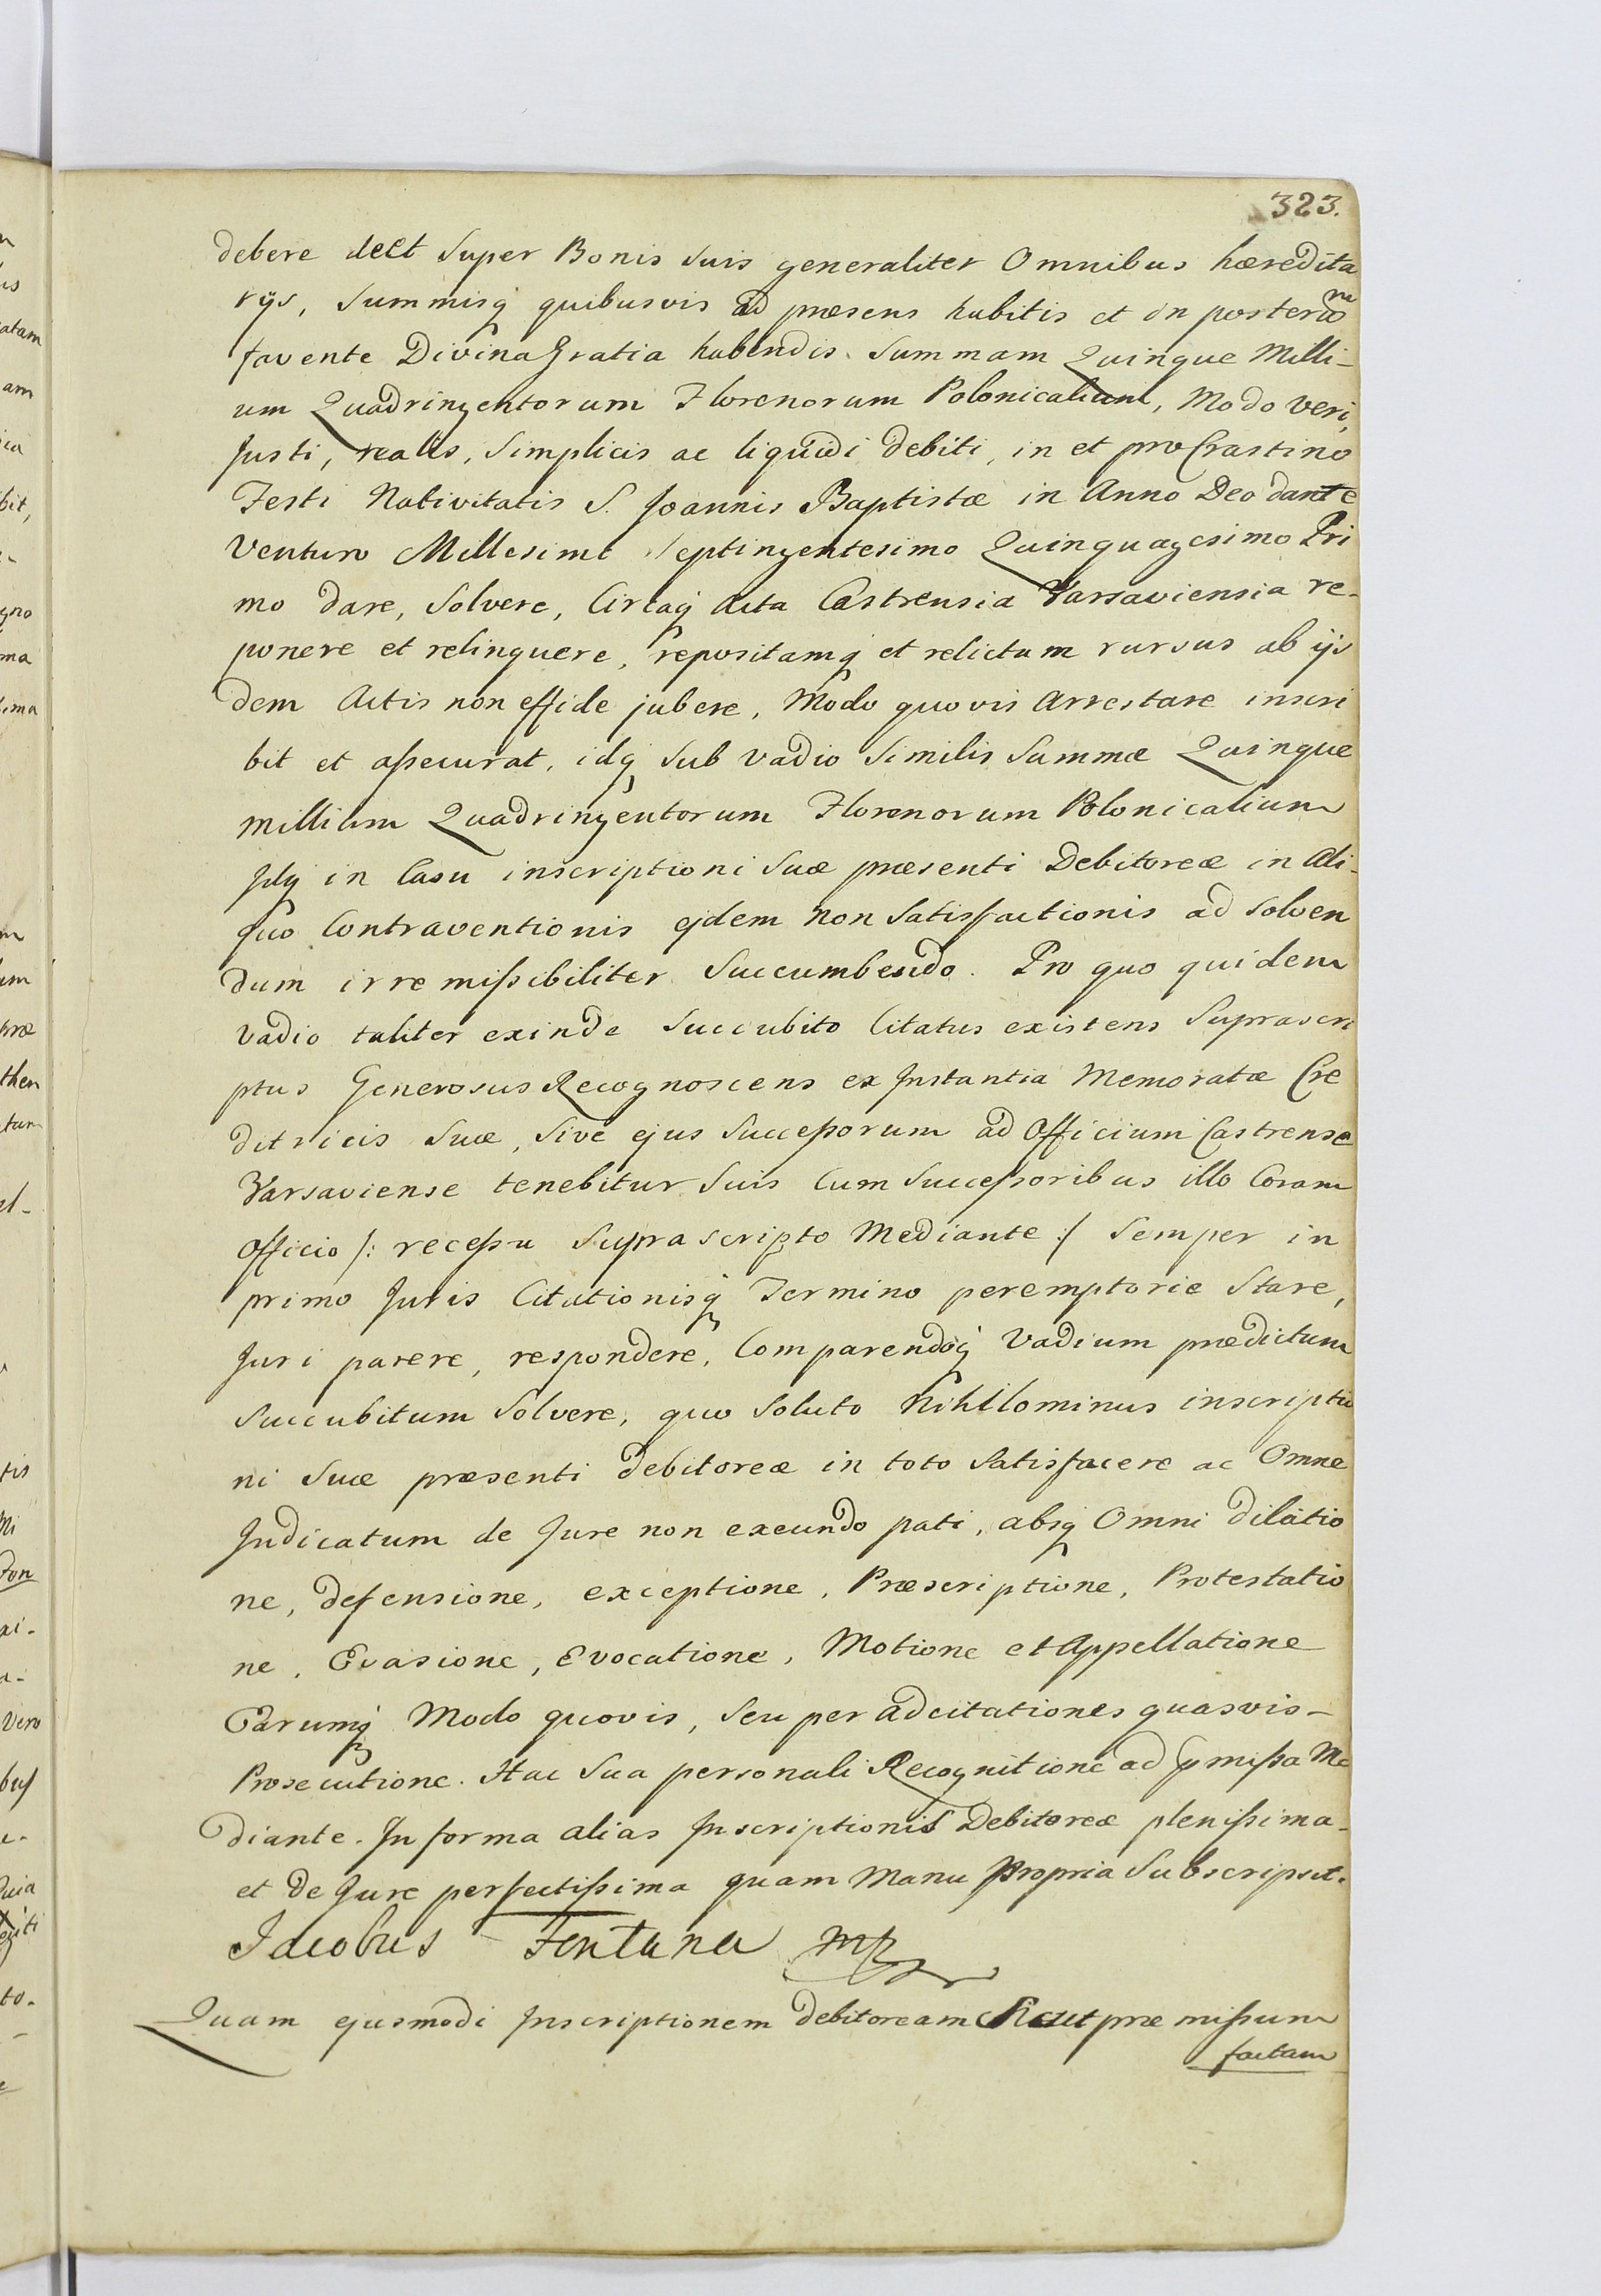 323.
debere dect Super Bonis Suis generaliter Omnibus hæredita
rijs, Summisq quibusvis ad præsens habitis et in posterum
favente Divina Gratia habendis. Summam Quinque Milli-
um Quadringentorum Florenorum Polonicalium, Modo veri,
Justi, realis, Simplicis ac liquidi debiti, in et pro Crastino
Festi Nativitatis S. Joannis Baptistæ in Anno Deo dante
Venturo Millesimo Septingentesimo Quinquagesimo Pri
mo dare, Solvere, Circaq Acta Castrensia Varsaviensia re-
ponere et relinquere, repositamq et relictam rursus ab ijs
dem Actis non effide jubere, Modo quovis Arrestare inscri
bit et assecurat, idq Sub vadio Similis Summæ Quinque
millium Quadringentorum Florenorum Polonicalium
Idq in Casu inscriptioni Suæ præsenti Debitoreæ in Ali-
quo Contraventionis ejdem non Satisfactionis ad Solven
dum irremissibiliter Succumbendo. Pro quo quidem
vadio taliter exinde Succubito Citatus existens Suprascri
ptus Generosus Recognoscens ex Instantia Memoratæ Cre
ditricis Suæ, Sive ejus Successorum ad Officium Castrense
Varsaviense tenebitur Suis Cum Successoribus illo Coram
Officio /: recessu Suprascripto Mediante :/ Semper in
primo Juris Citationisq Termino peremptorie Stare,
Juri parere, respondere, Comparendoq Vadium prædictum
Succubitum Solvere, quo Soluto Nihilominus inscriptio
ni Suæ præsenti debitoreæ in toto Satisfacere ac Omne
Judicatum de Jure non exeundo pati, absq Omni dilatio
ne, defensione, exceptione, Præscriptione, Protestatio
ne, Evasione, Evocatione, Motione et Appellatione
Earumq Modo quovis, Seu per adcitationes quasvis-
Prosecutione. Hac Sua personali Recognitione ad pmissa Me
diante. In forma alias Inscriptionis Debitoreæ plenissima-
et de Jure perfectissima quam Manu Propria Subscripsit.
Jacobus Fontana mp
Quam ejusmodi Inscriptionem debitoream Sicut præmissum
factam